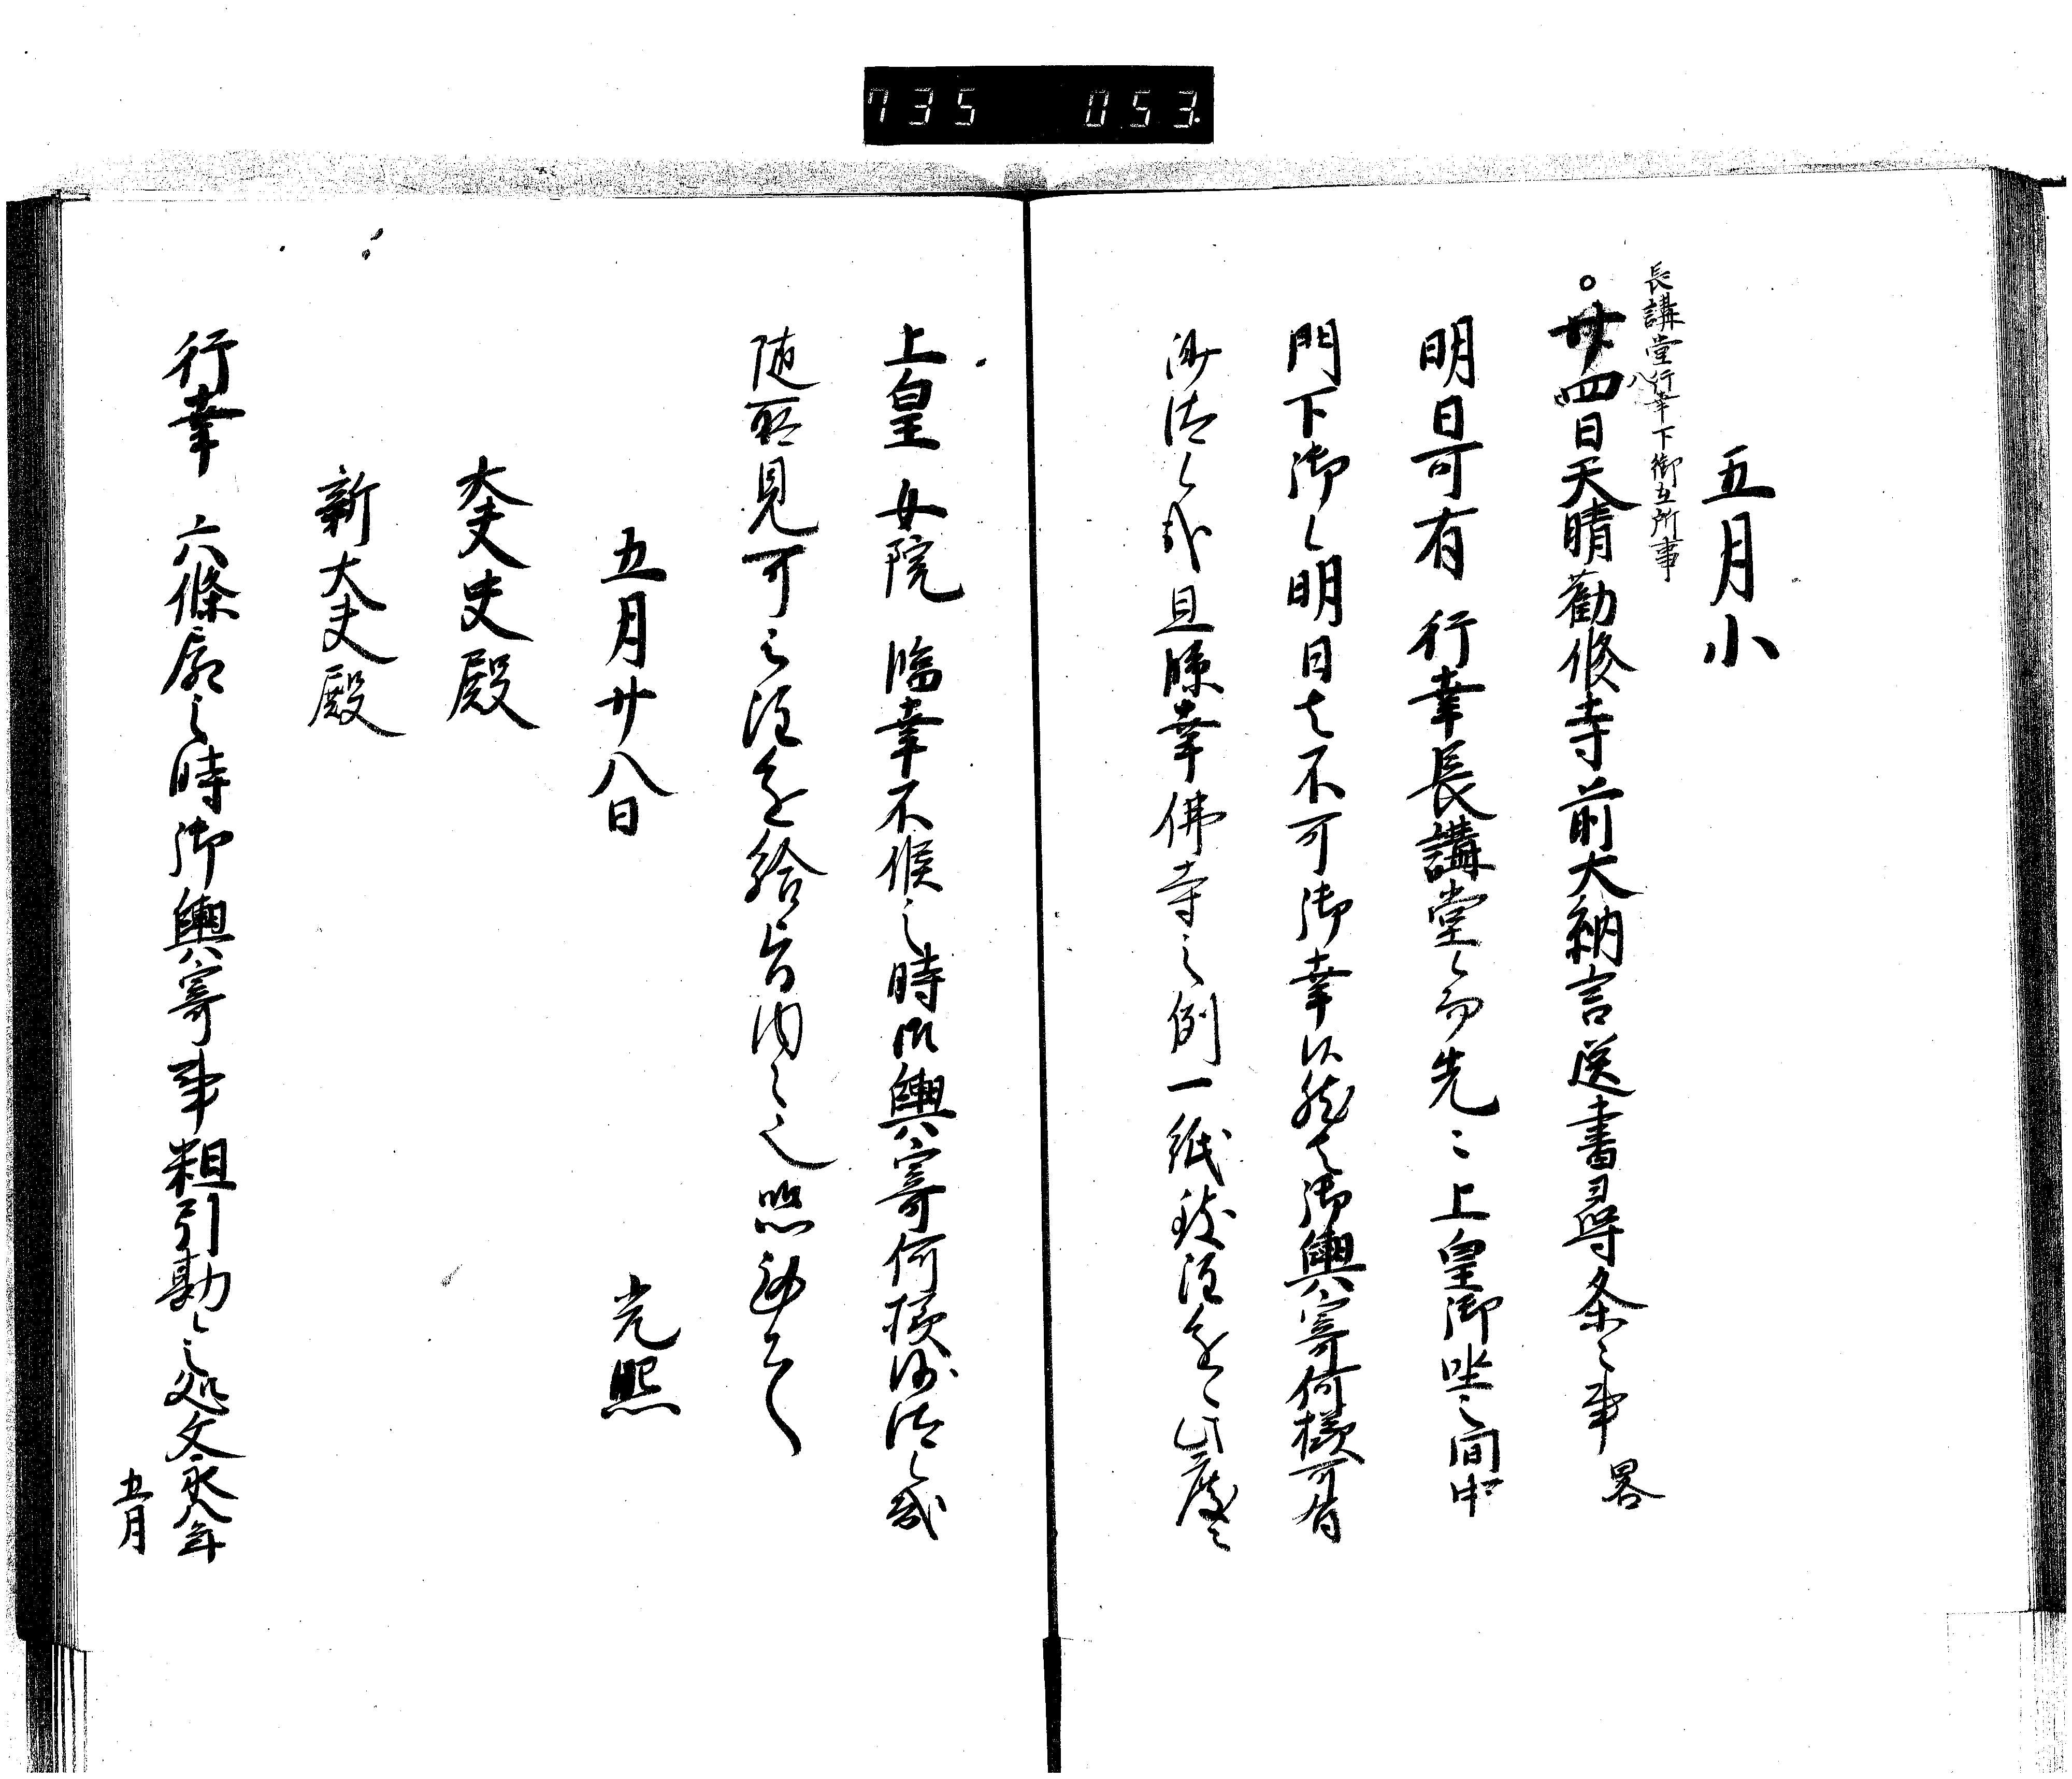 735 053
五月小
長講堂行幸下御立所事
廿四日天晴勧修寺前大納言送書尋条々事 畧
八
明日可有 行幸長講堂々而先々 上皇御坐之間中
門下御々明日者不可御幸以然者御輿寄何様可有
沙汰候哉且臨幸佛寺之例一紙注進 此度々
上皇 女院 臨幸不候之時御輿寄何様沙汰候哉
随所見可之注進給旨内々也恐々
五月廿八日 光熙
大夫史殿
新大夫殿
行幸 六條殿之時御輿寄事粗引勘候之処文永八年
五月